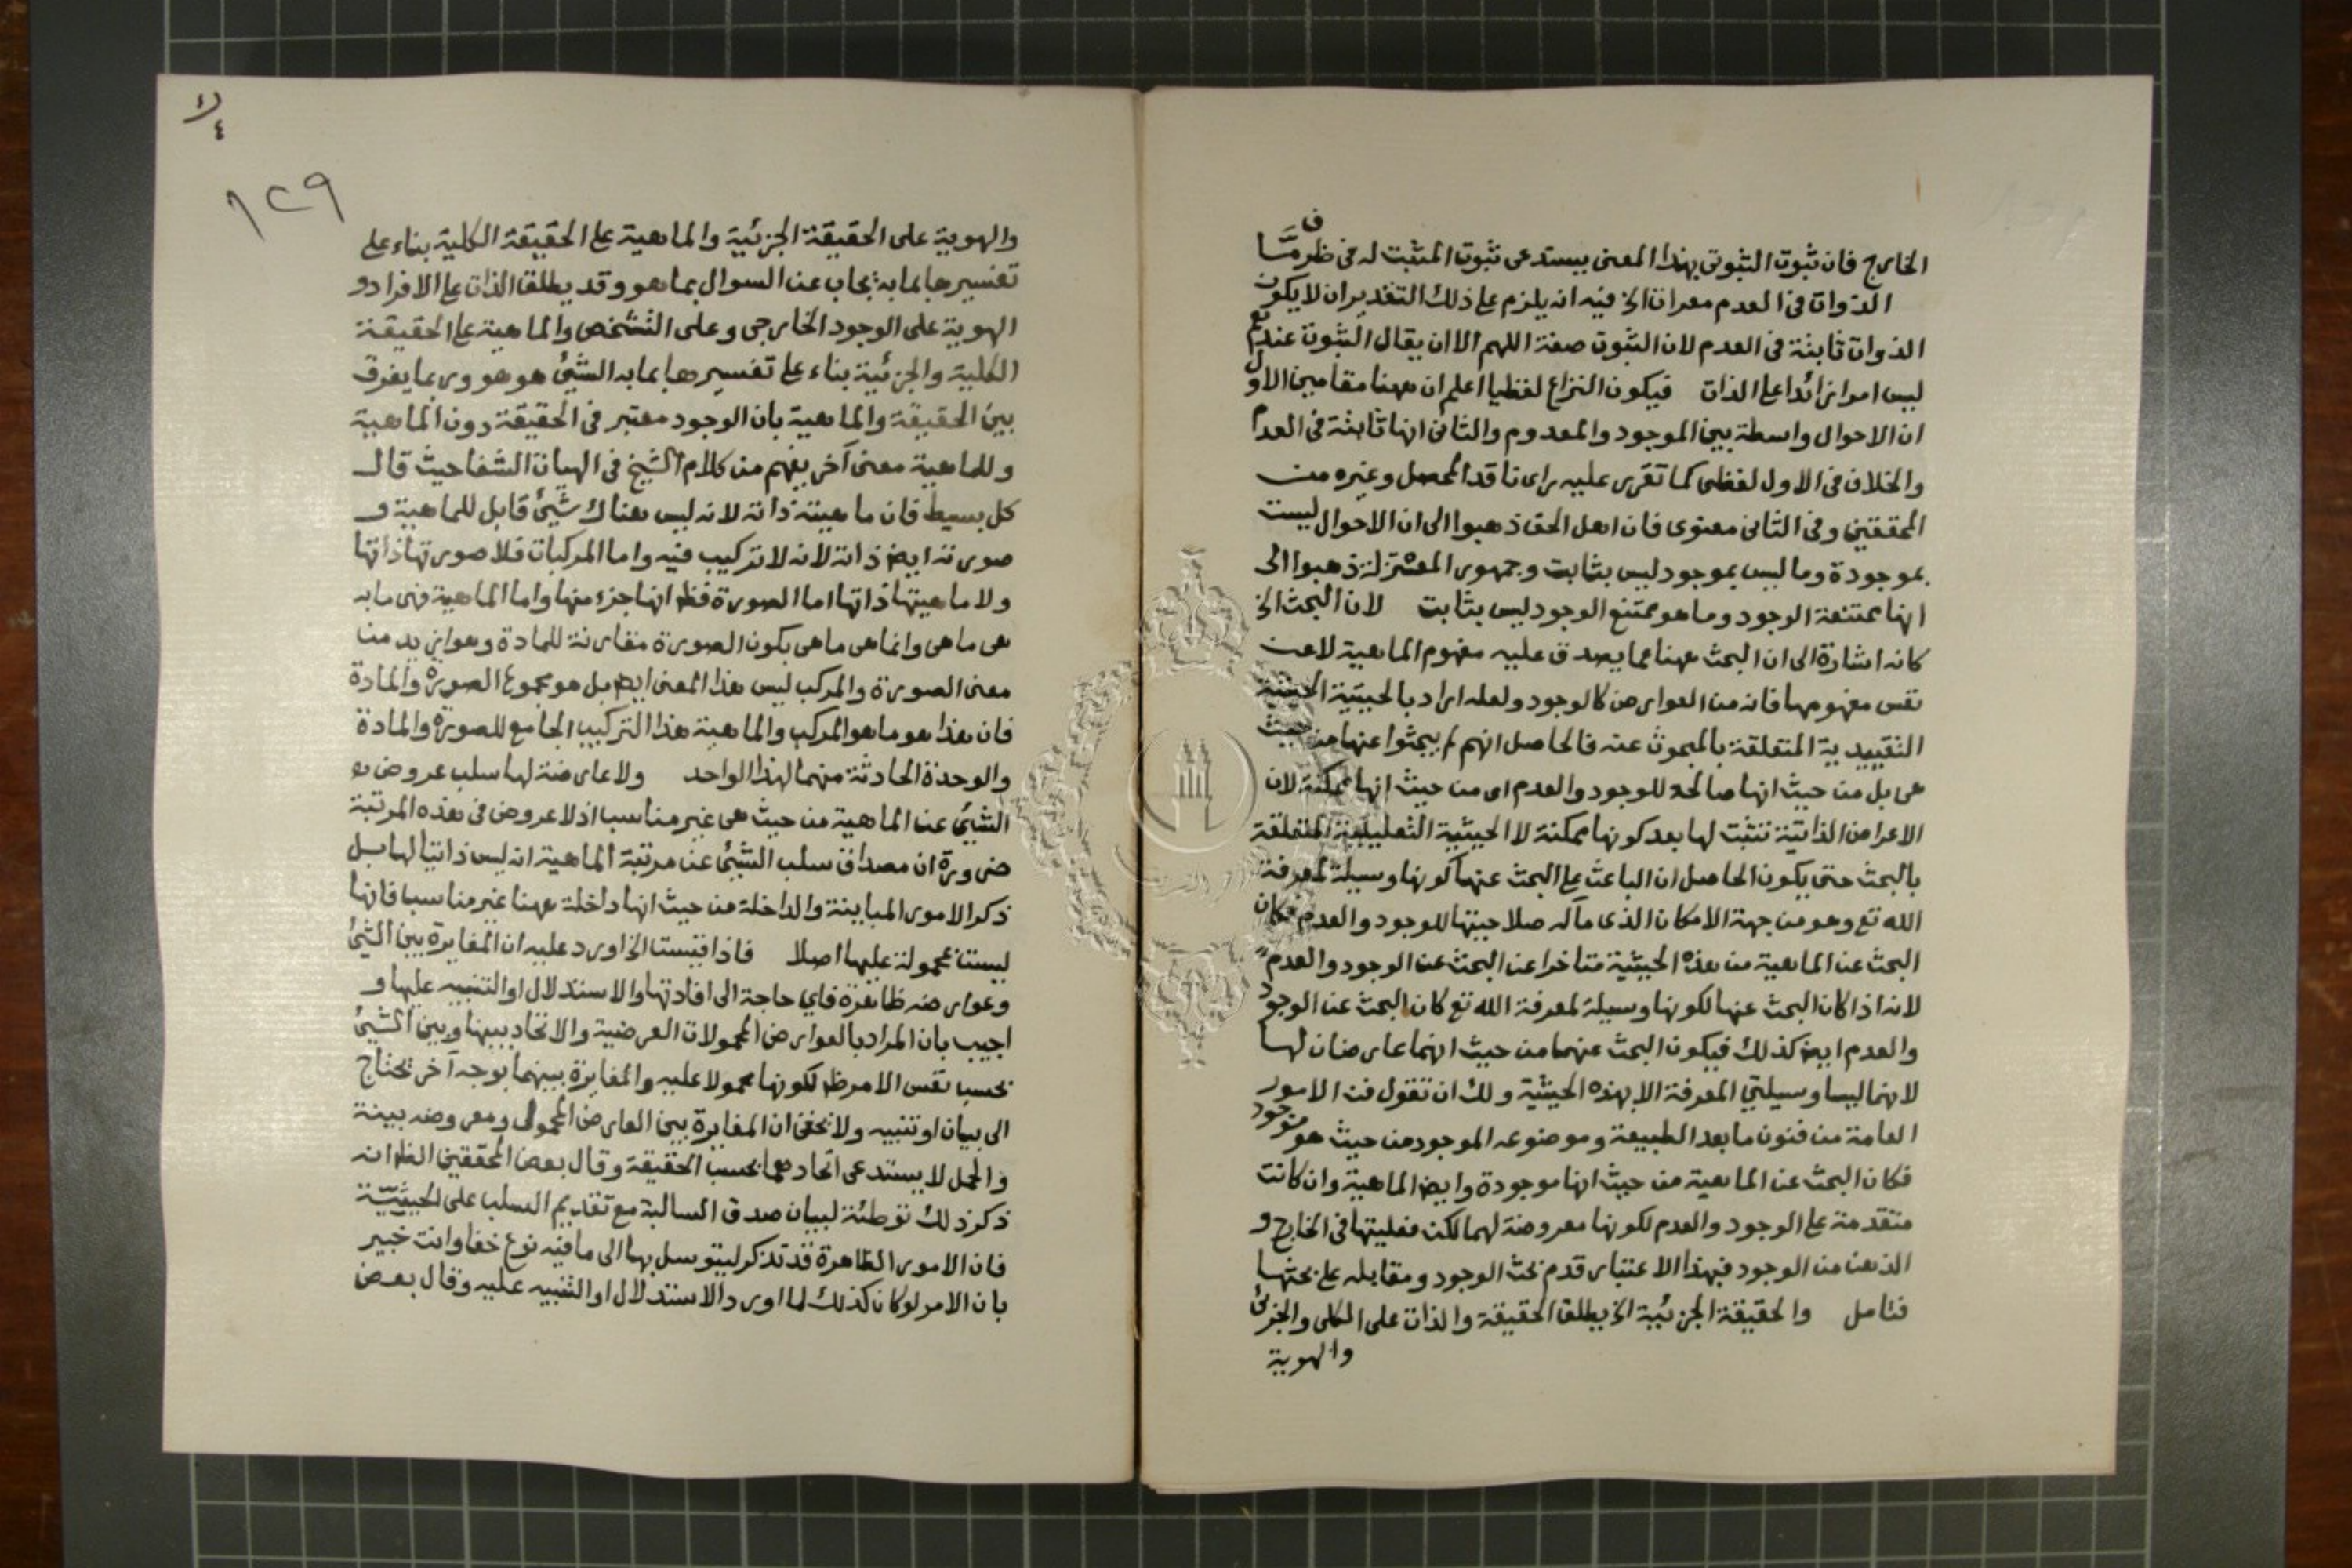 الخارج فان ثبوت الثبوتى بهذا المعنى يستدعى ثبوت المثبت له فى ظرف مّا
الذوات فى العدم معراة الخ فيه انه يلزم على ذلك التقدير ان لا يكون
الذوات ثابتة فى العدم لان الثبوت صفة اللهم الا ان يقال الثبوت عندهم
ليس امرا زائدا على الذات فيكون النزاع لفظيا اعلم ان ههنا مقامين الاول
ان الاحوال واسطة بين الموجود والمعدوم والثانى انها ثابتة فى العدم
والخلاف فى الاول لفظى كما تقرر عليه راى ناقد المحصل وغيره من
المحققين وفى الثانى معنوى فان اهل الحق ذهبوا الى ان الاحوال ليست
بموجودة وما ليس بموجود ليس بثابت وجمهور المعتزلة ذهبوا الى
انها ممتنعة الوجود وما هو ممتنع الوجود ليس بثابت لان البحث الخ
كانه اشارة الى ان البحث ههنا عما يصدق عليه مفهوم الماهية لا عن
نفس مفهومها فانه من العوارض كالوجود ولعله اراد بالحيثية الحيثية
التقييدية المتعلقة بالمبحوث عنه فالحاصل انهم لم يبحثوا عنها من حيث
هى بل من حيث انها صالحة للوجود والعدم اى من حيث انها ممكنة لان
الاعراض الذاتية تثبت لها بعد كونها ممكنة لا الحيثية التعليلية المتعلقة
بالبحث حتى يكون الحاصل ان الباعث على البحث عنها كونها وسيلة لمعرفة
الله تع وهو من جهة الامكان الذى مآله صلاحيتها للوجود والعدم فكان
البحث عن الماهية من هذه الحيثية متاخرا عن البحث عن الوجود والعدم
لانه اذا كان البحث عنها لكونها وسيلة لمعرفة الله تع كان البحث عن الوجود
والعدم ايض كذلك فيكون البحث عنهما من حيث انهما عارضان لها
لانهما ليسا وسيلتي المعرفة الا بهذه الحيثية ولك ان تقول فن الامور
العامة من فنون ما بعد الطبيعة وموضوعه الموجود من حيث هو موجود
فكان البحث عن الماهية من حيث انها موجودة وايض الماهية وان كانت
متقدمة على الوجود والعدم لكونها معروضة لهما لكن فعليتها فى الخارج و
الذهن من الوجود فبهذا الاعتبار قدم بحث الوجود ومقابله على بحثها
فتامل والحقيقة الجزئية الخ يطلق الحقيقة والذات على الكلى والجزئى
والهوية
٤
١٢٩
والهوية على الحقيقة الجزئية والماهية على الحقيقة الكلية بناء على
تفسيرها بما به يجاب عن السوال بما هو وقد يطلق الذات على الافراد و
الهوية على الوجود الخارجى وعلى التشخص والماهية على الحقيقة
الكلية والجزئية بناء على تفسيرها بما به الشئ هو هو وربما يفرق
بين الحقيقة والماهية بان الوجود معتبر فى الحقيقة دون الماهية
وللماهية معنى آخر يفهم من كلام الشيخ فى الهيات الشفا حيث قال
كل بسيط فان ماهيته ذاته لانه ليس هناك شئ قابل للماهية و
صورته ايض ذاته لانه لا تركيب فيه واما المركبات فلا صورتها ذاتها
ولا ماهيتها ذاتها اما الصورة فظ انها جزء منها واما الماهية فهى ما به
هى ما هى وانما هى ما هى بكون الصورة مقارنة للمادة وهو ازيد من
معنى الصورة والمركب ليس هذا المعنى ايض بل هو مجموع الصورة والمادة
فان هذا هو ما هو المركب والماهية هذا التركيب الجامع للصورة والمادة
والوحدة الحادثة منهما لهذا الواحد ولا عارضة لها سلب عروض
الشئ عن الماهية من حيث هى غير مناسب اذ لا عروض فى هذه المرتبة
ضرورة ان مصداق سلب الشئ عن مرتبة الماهية انه ليس ذاتيا لها بل
ذكر الامور المباينة والداخلة من حيث انها داخلة ههنا غير مناسب فانها
ليست محمولة عليها اصلا فاذا قيست الخ اورد عليه ان المغايرة بين الشئ
وعوارضه ظاهرة فاي حاجة الى افادتها والاستدلال او التنبيه عليها و
اجيب بان المراد بالعوارض المحمولات العرضية والاتحاد بينها وبين الشئ
بحسب نفس الامر ظ لكونها محمولا عليه والمغايرة بينهما بوجه آخر تحتاج
الى بيان او تنبيه ولا يخفى ان المغايرة بين العارض المحمول ومعروضه بينة
والحمل لا يستدعى اتحادهما بحسب الحقيقة وقال بعض المحققين الظ انه
ذكر ذلك توطئة لبيان صدق السالبة مع تقديم السلب على الحيثية
فان الامور الظاهرة قد تذكر ليتوسل بها الى ما فيه نوع خفا وانت خبير
بان الامر لو كان كذلك لما اورد الاستدلال او التنبيه عليه وقال بعض